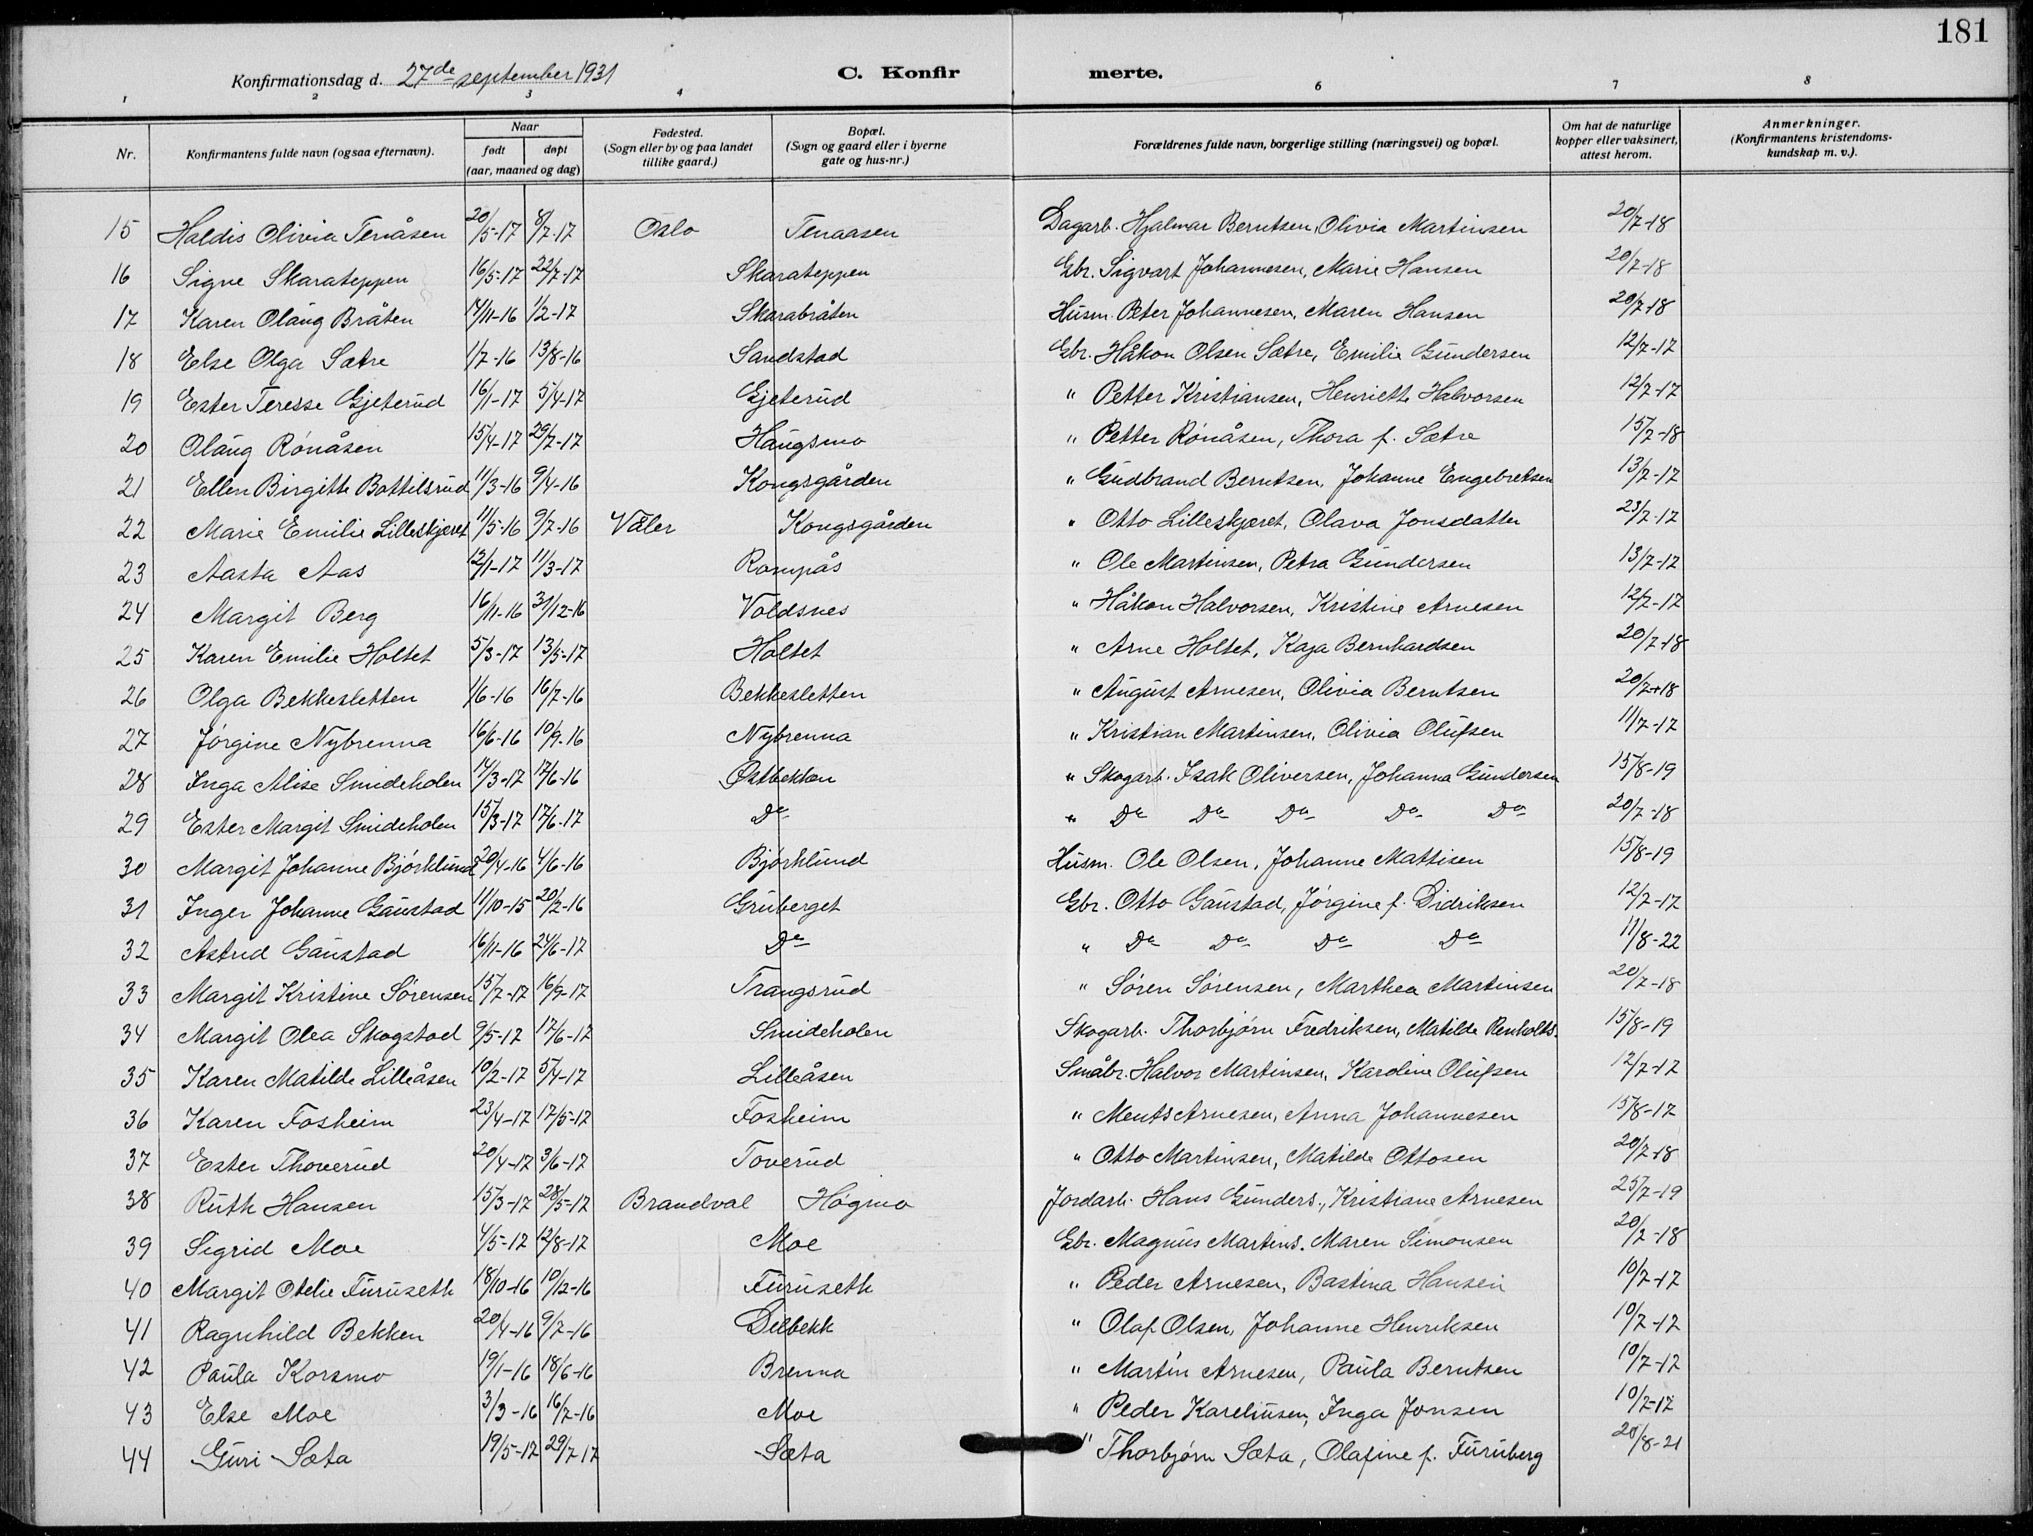 181
Konfirmationsdag d. 27de september 1931 C. Konfirmerte.
1 2 3 4 6 7 8
Nr. Konfirmantens fulde navn (ogsaa efternavn). Naar født døpt (aar, maaned og dag) Fødested. (Sogn eller by og paa landet tillike gaard.) Bopæl. (Sogn og gaard eller i byerne gate og hus-nr.) Forældrenes fulde navn, borgerlige stilling (næringsvei) og bopæl. Om hat de naturlige kopper eller vaksinert, attest herom. Anmerkninger. (Konfirmantens kristendoms-kundskap m. v.).
15 Haldis Olivia Tenåsen 20/5-17 8/7-17 Oslo Tenaasen Dagarb. Hjalmar Berntsen, Olivia Martinsen 20/7-18
16 Signe Skarateppen 16/5-17 22/7-17 Skarateppen Gbr. Sigvart Johannesen, Marie Hansen 20/7-18
17 Karen Olaug Bråten 17/11-16 1/2-17 Skarabråten Husm. Peter Johannesen, Maren Hansen 20/7-18
18 Else Olga Sætre 1/7-16 13/8-16 Sandstad Gbr. Håkon Olsen Sætre, Emilie Gundersen 12/7-17
19 Ester Teresse Gjeterud 16/1-17 5/4-17 Gjeterud " Petter Kristiansen, Henriette Halvorsen 12/7-17
20 Olaug Rønåsen 15/4-17 29/7-17 Haugsmo " Petter Rønåsen, Thora f. Sætre 15/7-18
21 Ellen Birgitte Bottilsrud 11/3-16 9/4-16 Kongsgården " Gudbrand Berntsen, Johanne Engebretsen 13/7-17
22 Marie Emilie Lilleskjæret 11/5-16 9/7-16 Våler Kongsgården " Otto Lilleskjæret, Olava Jonsdatter 23/7-17
23 Aasta Aas 12/1-17 11/3-17 Rompås " Ole Martinsen, Petra Gundersen 13/7-17
24 Margit Berg 16/11-16 31/12-16 Voldsnes " Håkon Halvorsen, Kristine Arnesen 12/7-17
25 Karen Emilie Holtet 5/3-17 13/5-17 Holtet " Arne Holtet, Kaja Bernhardsen 20/7-18
26 Olga Bekkesletten 1/6-16 16/7-16 Bekkesletten " August Arnesen, Olivia Berntsen 20/7-18
27 Jørgine Nybrenna 16/6-16 10/9-16 Nybrenna " Kristian Martinsen, Olivia Olufsen 11/7-17
28 Inga Alise Smideholen 14/3-17 17/6-16 Østbekken " Skogarb. Isak Oliversen, Johanna Gundersen 15/8-19
29 Ester Margit Smideholen 15/3-17 17/6-17 Do " Do Do Do Do Do 20/7-18
30 Margit Johanne Bjørklund 20/4-16 4/6-16 Bjørklund Husm. Ole Olsen, Johanne Mattisen 15/8-19
31 Inger Johanne Gaustad 11/10-15 20/2-16 Gruberget Gbr. Otto Gaustad, Jørgine f. Didriksen 12/7-17
32 Astrid Gaustad 16/11-16 24/6-17 Do " Do Do Do Do 11/8-22
33 Margit Kristine Sørensen 15/7-17 16/9-17 Trangsrud " Søren Sørensen, Marthea Martinsen 20/7-18
34 Margit Olea Skogstad 9/5-17 17/6-17 Smideholen Skogarb. Thorbjørn Fredriksen, Matilde Renholts. 15/8-19
35 Karen Matilde Lilleåsen 10/2-17 5/4-17 Lilleåsen Småbr. Halvor Martinsen, Karoline Olufsen 12/7-17
36 Karen Fosheim 23/4-17 17/5-17 Fosheim " Ments Arnesen, Anna Johannesen 15/8-17
37 Ester Thoverud 20/4-17 3/6-17 Toverud " Otto Martinsen, Matilde Ottosen 20/7-18
38 Ruth Hansen 15/3-17 28/5-17 Brandval Høgmo Jordarb. Hans Gunders., Kristiane Arnesen 25/7-19
39 Sigrid Moe 4/5-17 12/8-17 Moe Gbr. Magnus Martins. Maren Simonsen 20/7-18
40 Margit Otelie Furuseth 18/10-16 10/12-16 Furuseth " Peder Arnesen, Bastina Hansen 10/7-17
41 Ragnhild Bekken 20/4-16 9/7-16 Dilbekk " Olaf Olsen, Johanne Henriksen 10/7-17
42 Paula Korsmo 19/1-16 18/6-16 Brenna " Martin Arnesen, Paula Berntsen 10/7-17
43 Else Moe 3/3-16 16/7-16 Moe " Peder Kareliusen, Inga Jonsen 10/7-17
44 Guri Sæta 19/5-17 29/7-17 Sæta " Thorbjørn Sæta, Olafine f. Furuberg 20/8-21